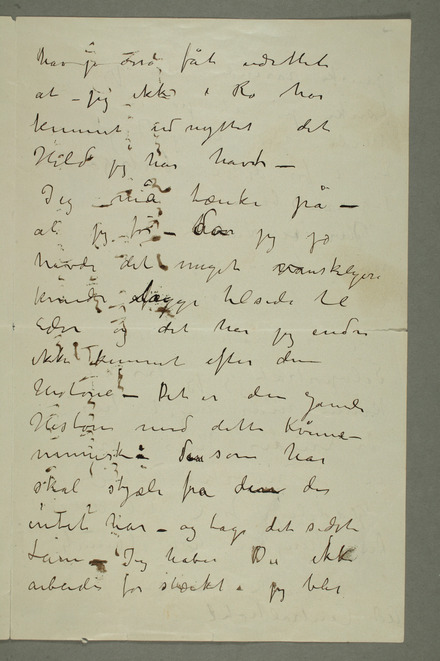 har jo også fåt udrettet
at – jeg ikke i Ro har
kunnet udnyttet det
Held jeg har havt –
Jeg må tænke på –
at jeg for – da jeg jo
havde det meget vanskeligere
kunde lægge tilside til
Eder og det har jeg endnu
ikke kunnet efter den
Historie – Det er den gamle
Historie med dette Kvinne-
menniske som har
skal stjæle fra den der
intet har – og tage det sidste
Lam – Jeg haber Du ikke
arbeider for stærkt. jeg blev